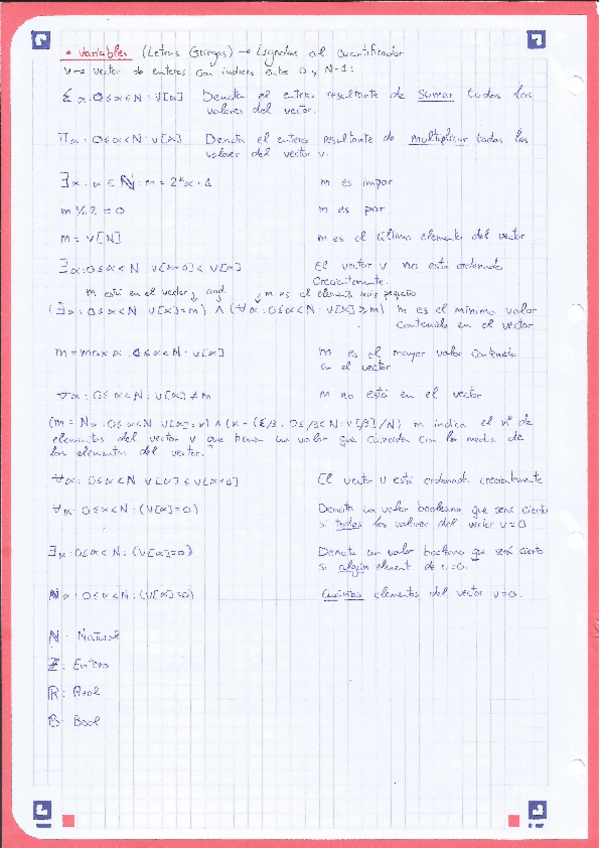 • Variables (Letras Griegas) → Ligadas al cuantificador
V → vector de enteros con índices entre 0 y N-1:
Σα: 0≤α<N: V[α] Denota el entero resultante de sumar todos los
valores del vector.
Πα: 0≤α<N: V[α] Denota el entero resultante de multiplicar todos los
valores del vector v.
∃α: α∈ℕ: m = 2*α+1 m es impar
m%2=0 m es par
m = V[N] m es el último elemento del vector
∃α: 0≤α<N: V[α+1]<V[α] El vector v no está ordenado
crecientemente.
m está en el vector and m es el elemento más pequeño
(∃α: 0≤α<N: V[α]=m) ∧ (∀α: 0≤α<N: V[α]≥m) m es el mínimo valor
contenido en el vector
m = max α: 0≤α<N: v[α] m es el mayor valor contenido
en el vector
∀α: 0≤α<N: v[α]≠m m no está en el vector
(m = Nα: 0≤α<N: v[α]=x) ∧ (x = (Σβ: 0≤β<N: v[β])/N) m indica el nº de
elementos del vector v que tienen un valor que coincida con la media de
los elementos del vector.
∀α: 0≤α<N: V[α]≤v[α+1] El vector v está ordenado crecientemente
∀α: 0≤α<N: (V[α]=0) Denota un valor booleano que será cierto
si todos los valores del vector v=0
∃α: 0≤α<N: (V[α]=0) Denota un valor booleano que será cierto
si algún element de v=0.
Nα: 0≤α<N: (V[α]=0) Cuántos elementos del vector v=0.
ℕ: Natural
ℤ: Entero
ℝ: Real
𝔹: Bool